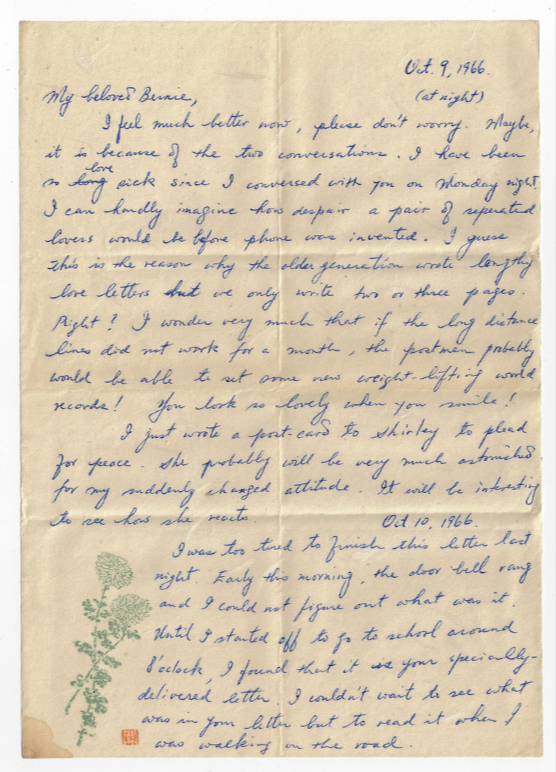 Oct. 9, 1966.
My beloved Bernie,
(at night)
I feel much better now, please don't worry. Maybe,
it is because of the two conversations. I have been
so love sick since I conversed with you on Monday night.
I can hardly imagine how despair a pair of seperated
lovers would be before phone was invented. I guess
this is the reason why the older generation wrote lengthy
love letters but we only write two or three pages.
Right? I wonder very much that if the long distance
lines did not work for a month, the postmen probably
would be able to set some new weight-lifting world
records! You look so lovely when you smile!
I just wrote a post-card to Shirley to plead
for peace. She probably will be very much astonished
for my suddenly changed attitude. It will be interesting
to see how she reacts.
Oct 10, 1966.
I was too tired to finish this letter last
night. Early this morning, the door bell rang
and I could not figure out what was it.
Until I started off to go to school around
8'oclock, I found that it is your specially-
delivered letter. I couldn't wait to see what
was in your letter but to read it when I
was walking on the road.